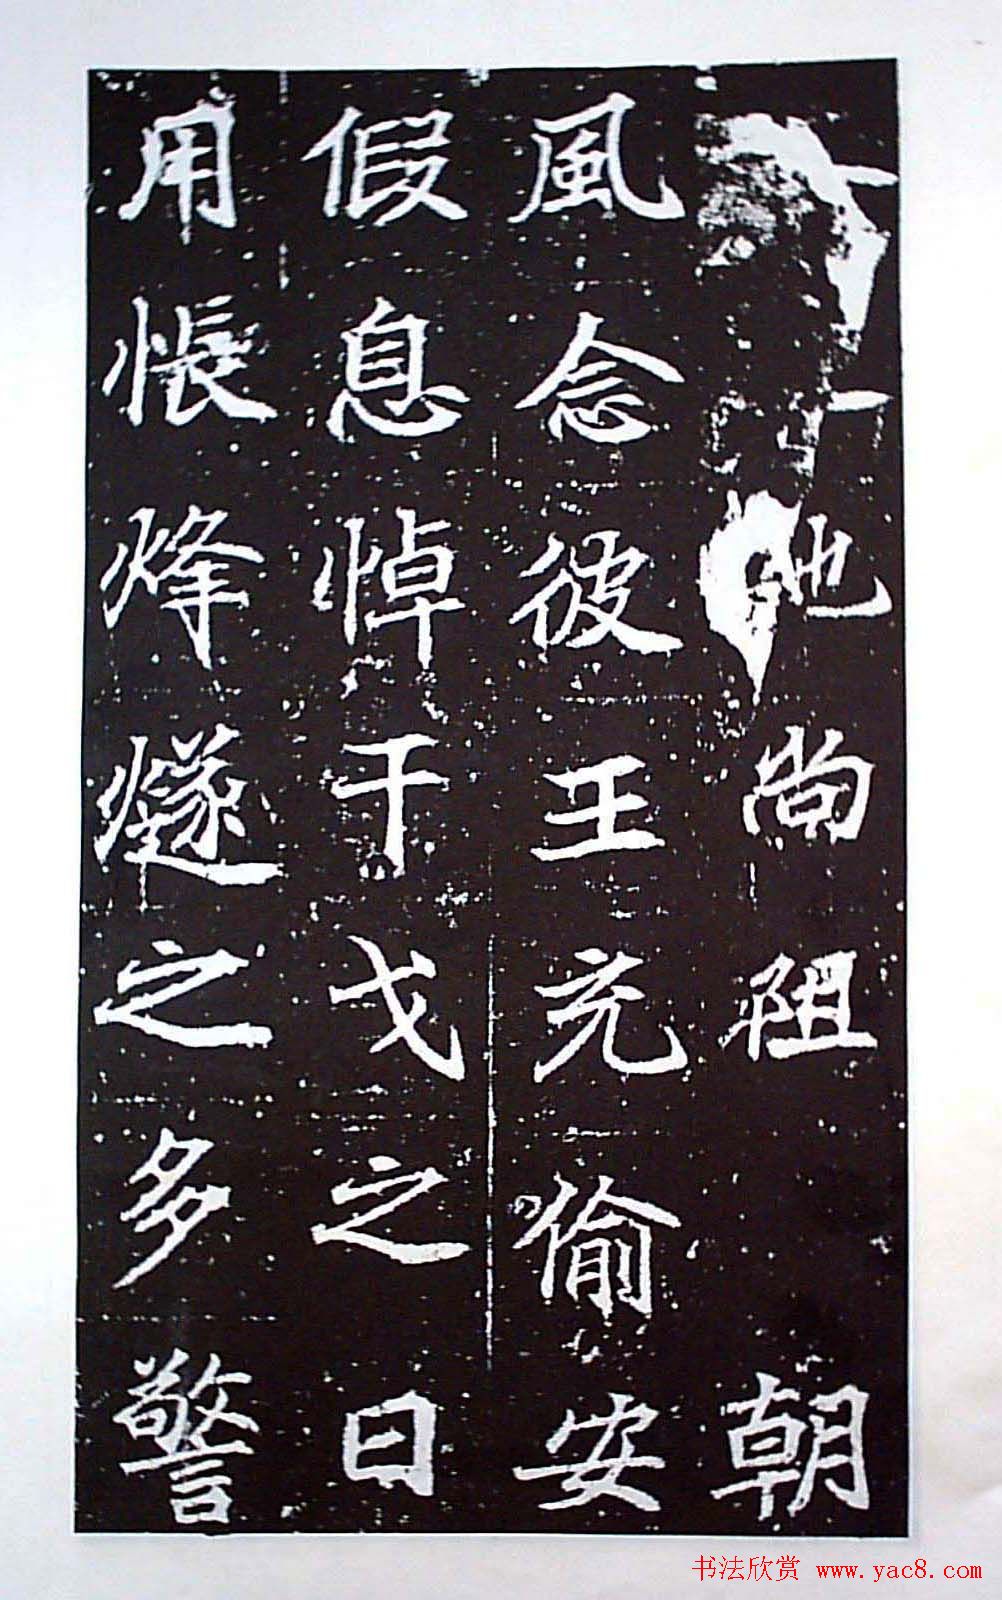 尚阻朝
風念彼王充偷安
假息悼干戈之日
用悵烽燧之多警
书法欣赏 www.yac8.com